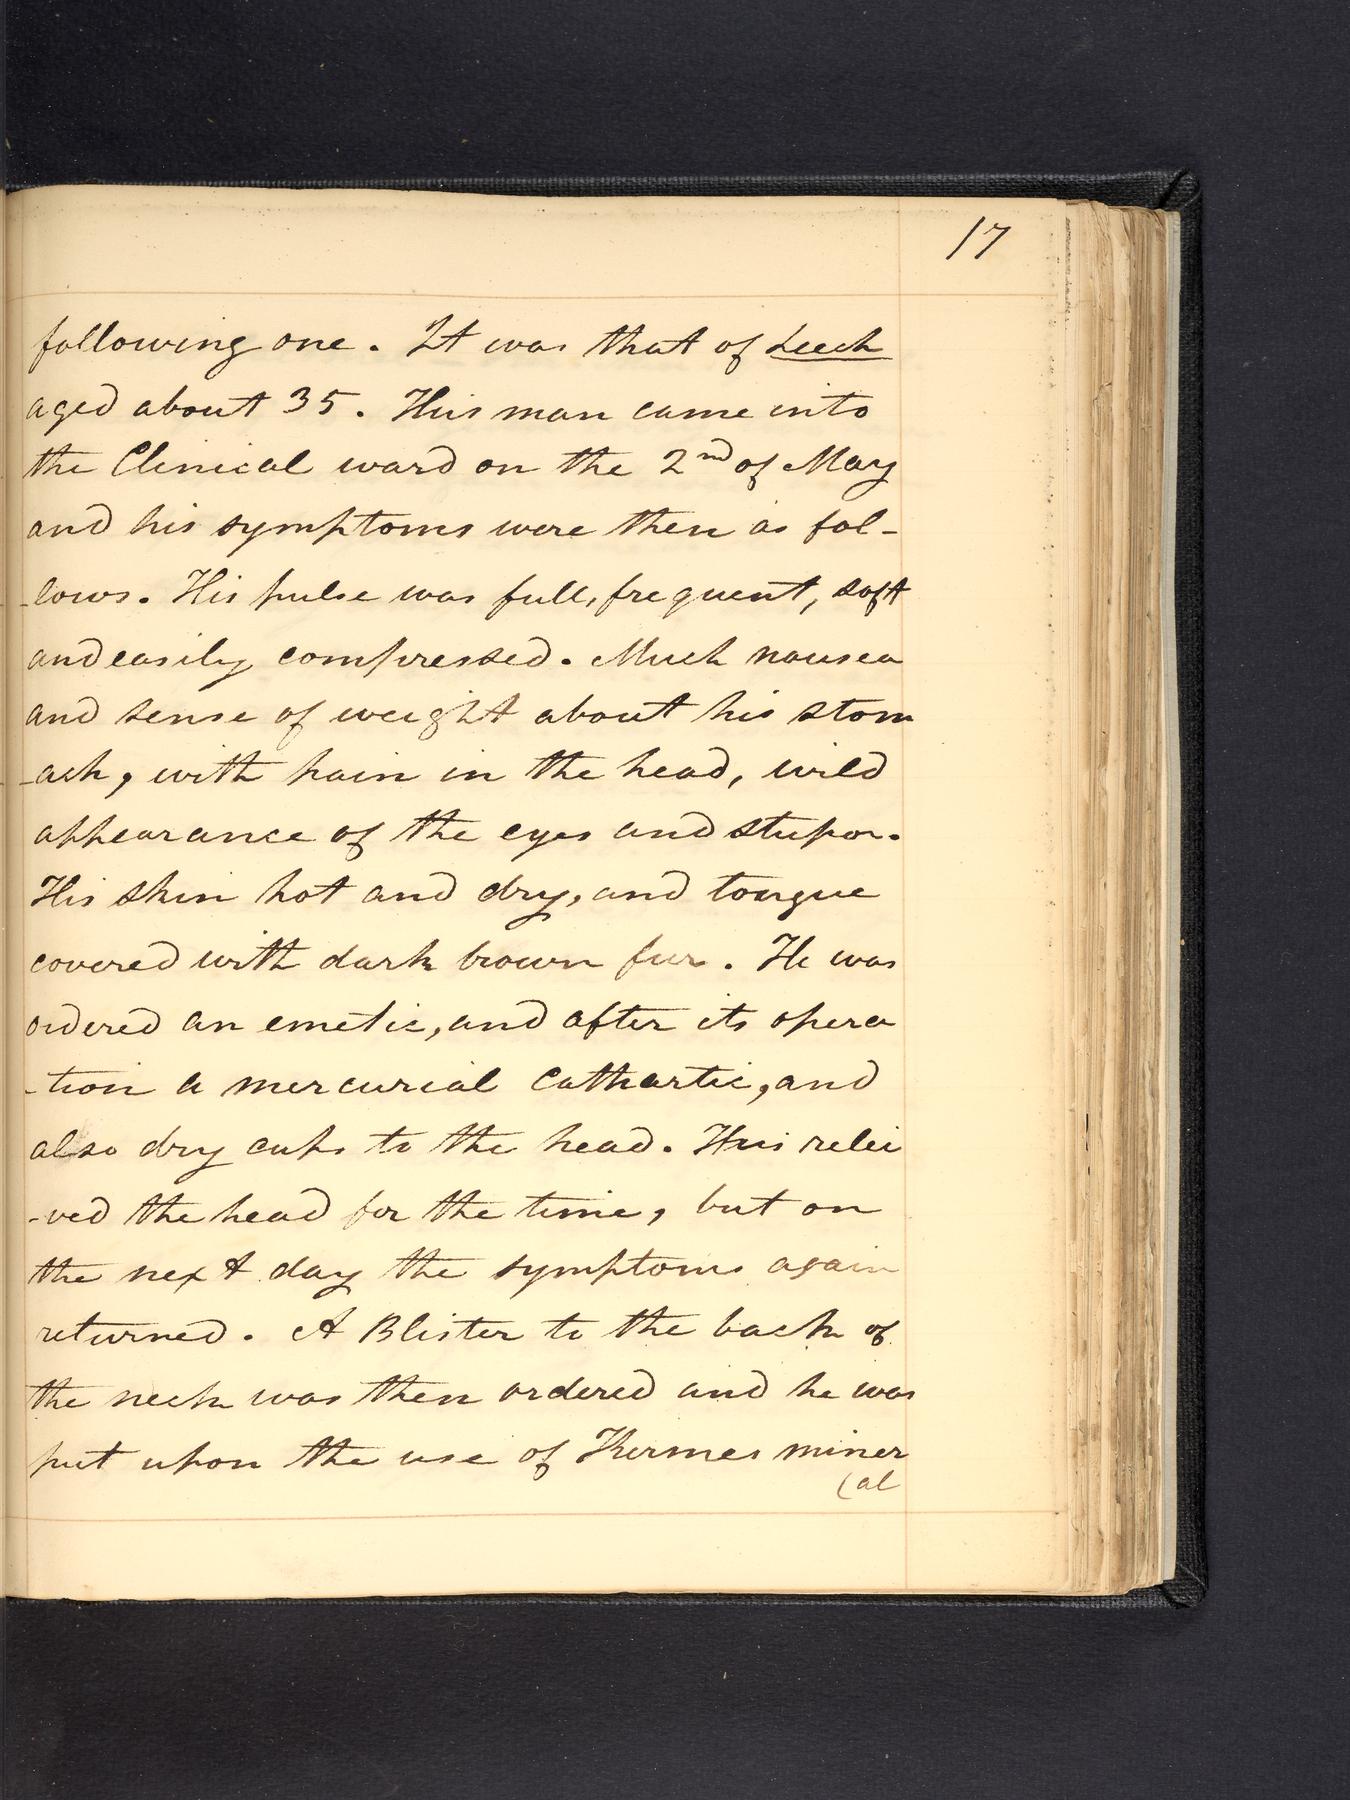 17
following one. It was that of Leech
aged about 35. This man came into
the Clinical ward on the 2nd of May
and his symptoms were then as fol-
-lows. His pulse was full, frequent, soft
and easily compressed. Much nausea
and sense of weight about his stom
-ach, with pain in the head, wild
appearance of the eyes and stupor.
His skin hot and dry, and tongue
covered with dark brown fur. He was
ordered an emetic, and after its opera
-tion a mercurial Cathartic, and
also dry cups to the head. This relei
-ved the head for the time, but on
the next day the symptoms again
returned. A Blister to the back of
the neck was then ordered and he was
put upon the use of Kermes miner
(al